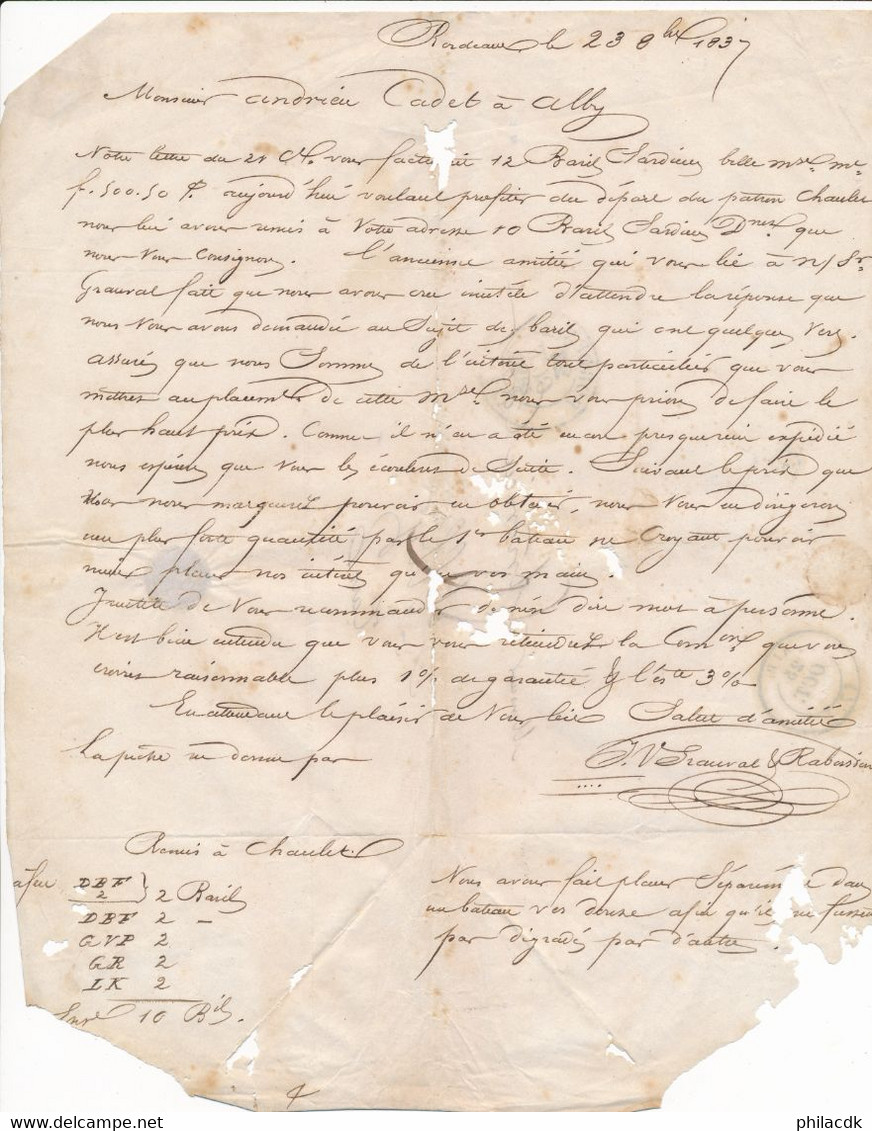 Bordeaux le 23 8bre 1837
Monsieur Andrieu Cadet à Alby
Notre lettre du 21 Ct. vous facturait 12 Barils Sardines belle mse. me
f. 500.50 aujourd'hui voulant profiter du départ du patron Chaulet
nous lui avons remis à Votre adresse 10 Barils Sardines Dnes. que
nous Vous Consignons. L'ancienne amitiée qui vous lie à n/ Sr.
Grauval fait que nous avons cru inutile d'attendre la réponse que
nous Vous avons demandée au Sujet des barils qui ont quelques Vers.
assurés que nous Sommes de l'intérêt tout particulier que vous
mettrez au placement de cette mse nous vous prions de faire le
plus haut prix. Comme il n'en a été encore presque rien expédié
nous espérons que vous les écoulerez de Suite. Suivant le prix que
nous marquerez pouvoir en obtenir, nous Vous en dirigerons
une plus forte quantité par le 1er bateau ne Croyant pouvoir
mieux placer nos intérêts qu'en vos mains.
Inutile de Vous recommander de n'en dire mot à personne.
Il est bien entendu que vous vous retiendrez la Comon. que vous
croirez raisonnable plus 1% de garantie & l'este 3%
En attendant le plaisir de Vous lire Salut d'amitiée
La pêche ne donne pas J. V Grauval & Rabassan
Remis à Chaulet
DBF
2 } 2 Barils
DBF 2 —
GVP 2
GR 2
LK 2
10 Bils.
Nous avons fait placer Séparément dans
un bateau vos douze afin qu'ils ne fussent
pas dégradés par d'autres.
OCT.
www.delcampe.net
philacdk